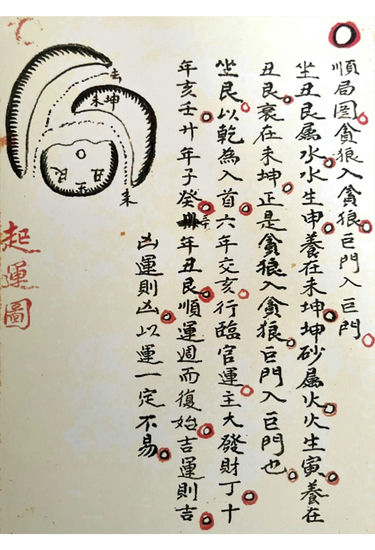 順局圖貪狼入貪狼巨門入巨門
坐丑艮屬水水生申養在未坤坤砂屬火火生寅養在
丑艮衰在未坤正是貪狼入貪狼巨門入巨門也
坐艮以乾為入首六年交亥行臨官運主大發財丁十
年亥壬廿年子癸卅年丑艮順運週而復始吉運則吉
凶運則凶以運一定不易
起運圖
未坤
丑艮
未